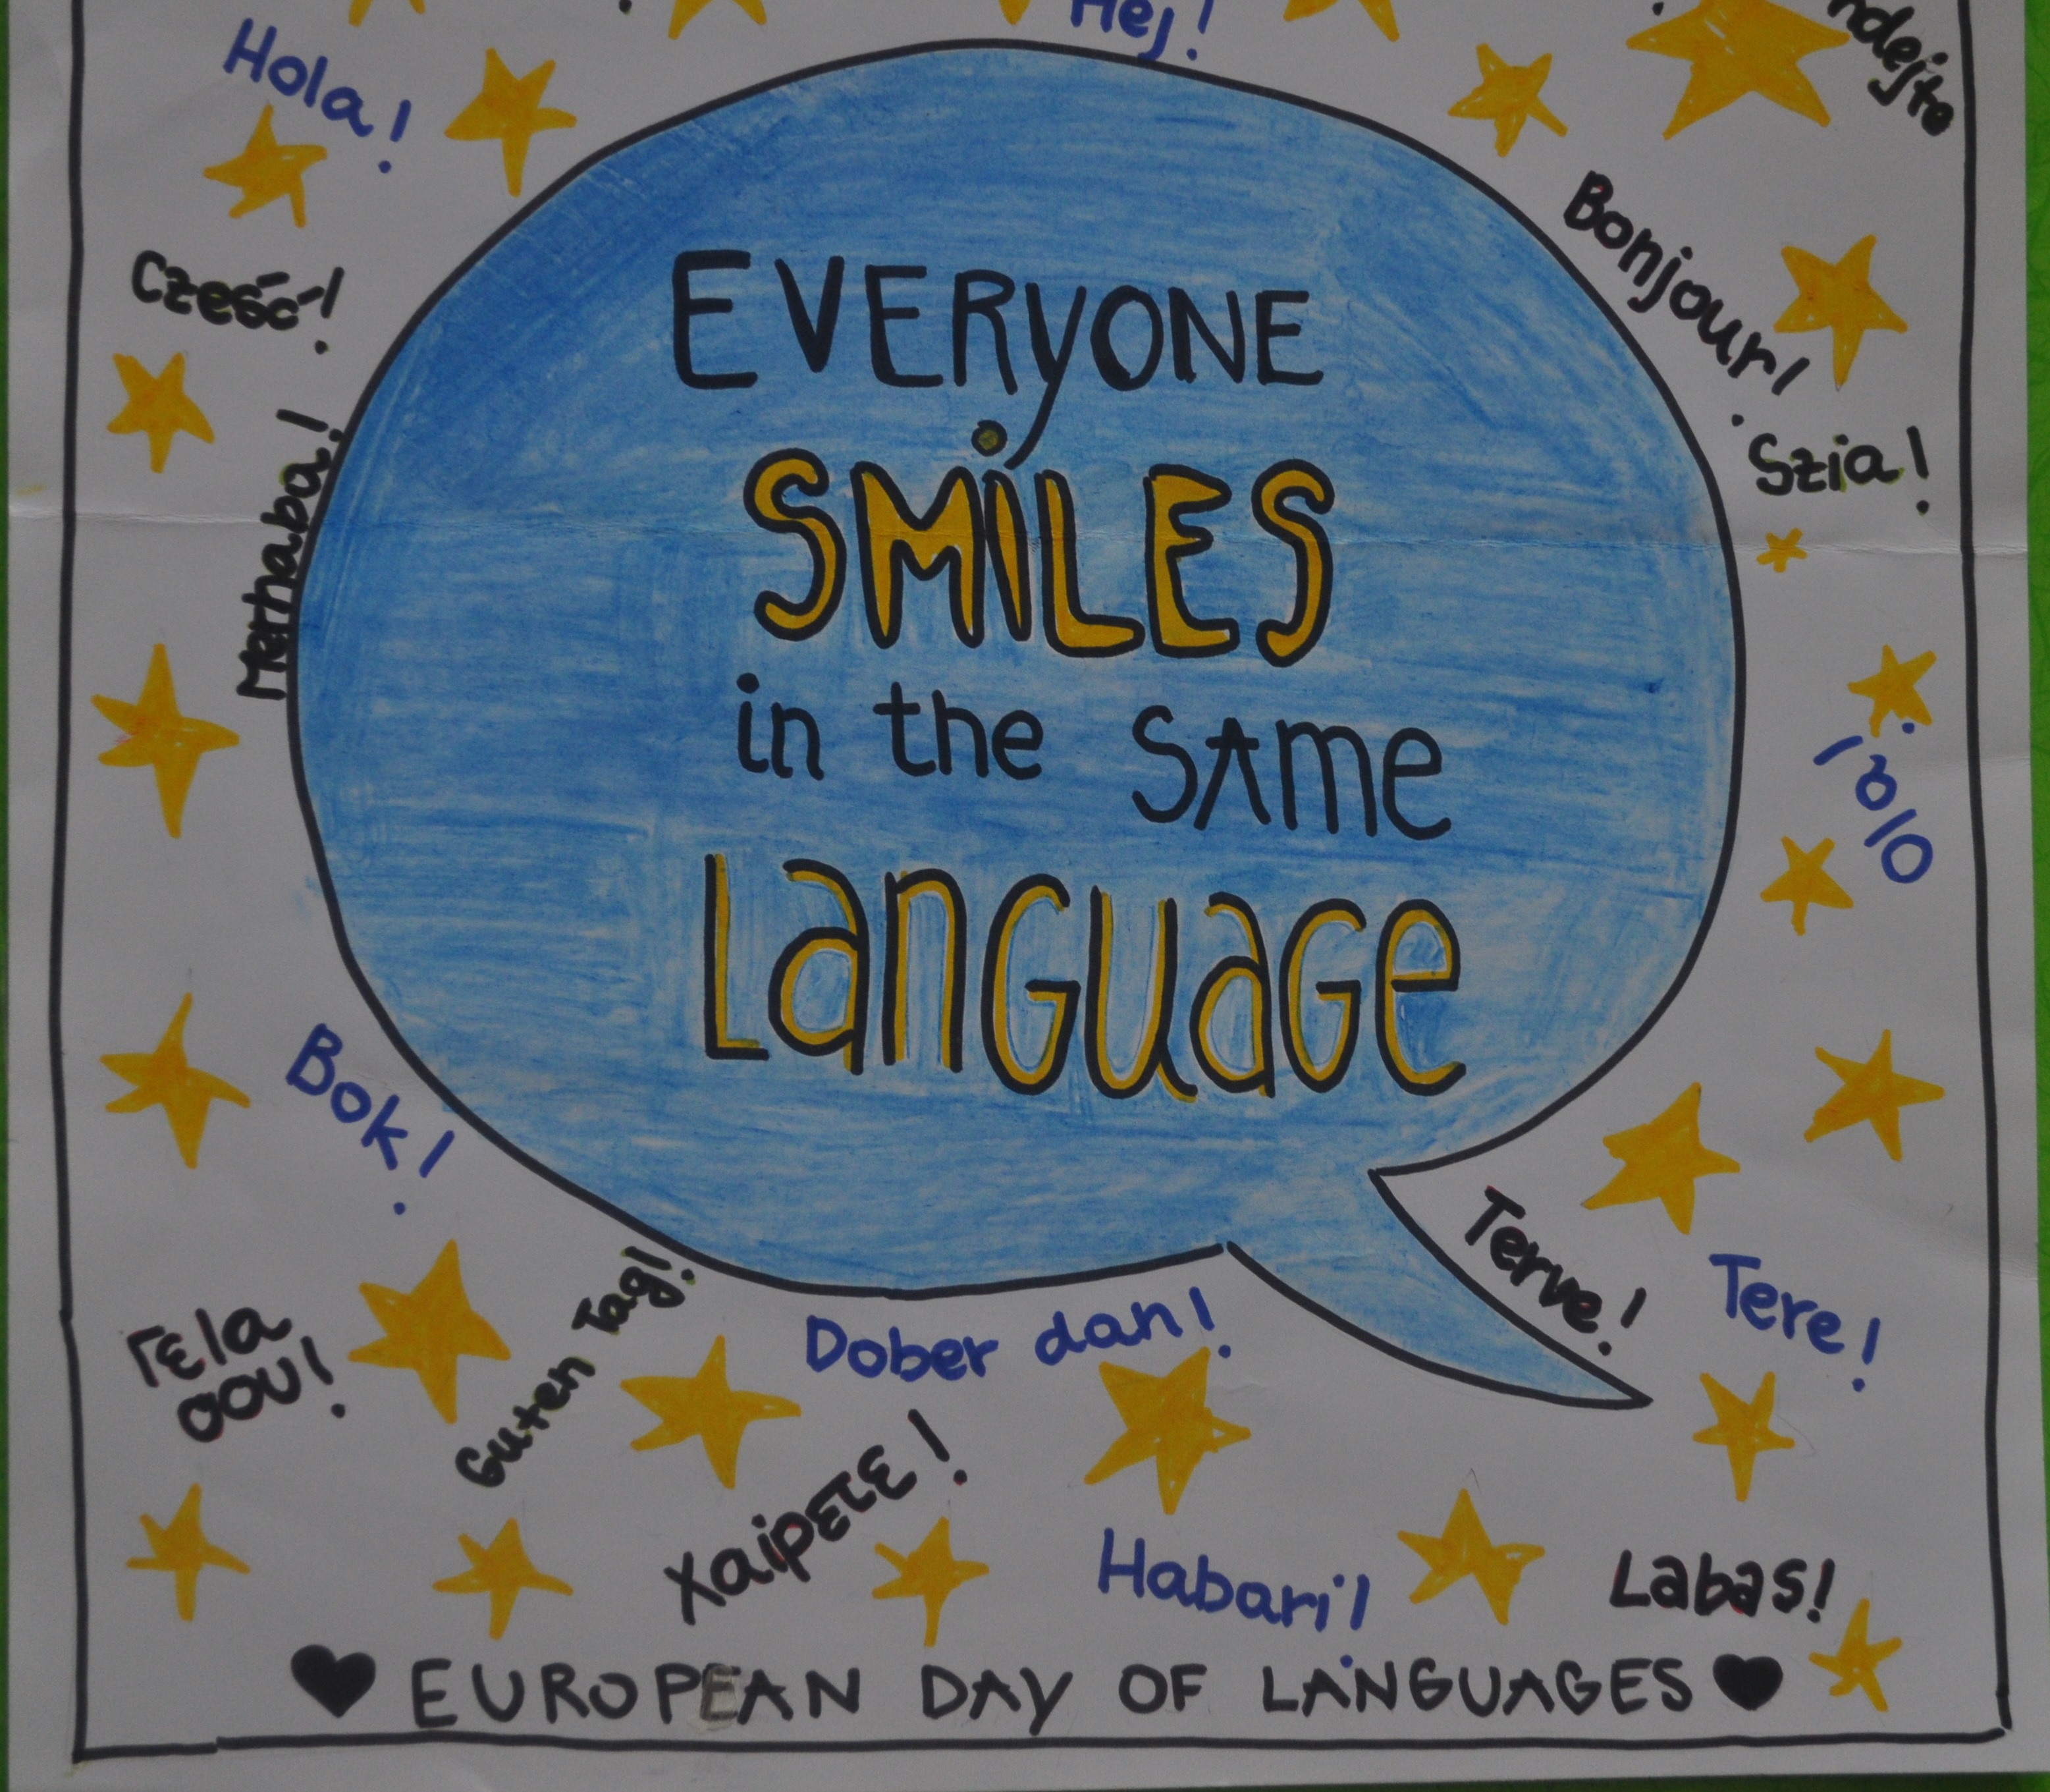 Hej!
Hola!
Cześć!
Bonjour!
Szia!
Merhaba!
EVERyONE
SMiLES
in the SAme
LanGuaGe
Ola!
Bok!
Terve!
Tere!
Γεια
σου!
Guten Tag!
Dober dan!
Χαίρετε!
Habari!
Labas!
EUROPEAN DAy OF LANGUAGES